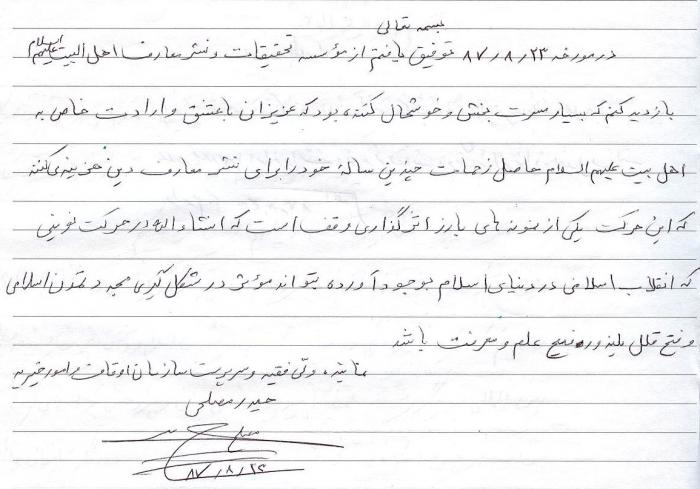 بسمه تعالی
در مورخه ۸۷/۸/۲۳ توفیق یافتم از مؤسسه تحقیقات و نشر معارف اهل البیت علیهم السلام
بازدید کنم که بسیار مسرت بخش و خوشحال کننده بود که عزیزان با عشق و ارادت خاص به
اهل بیت علیهم السلام حاصل زحمات چندین ساله خود را برای نشر معارف دین هزینه می‌کنند
که این حرکت یکی از نمونه های بارز اثرگذاری وقف است که انشاء الله در حرکت نوینی
که انقلاب اسلامی در دنیای اسلام بوجود آورده بتواند مؤثر در شکل گیری مجدد تمدن اسلامی
و فتح قلل بلند و رفیع علم و معرفت باشد
نماینده ولی فقیه و سرپرست سازمان اوقاف و امور خیریه
حیدر مصلحی
۸۷/۸/۲۶